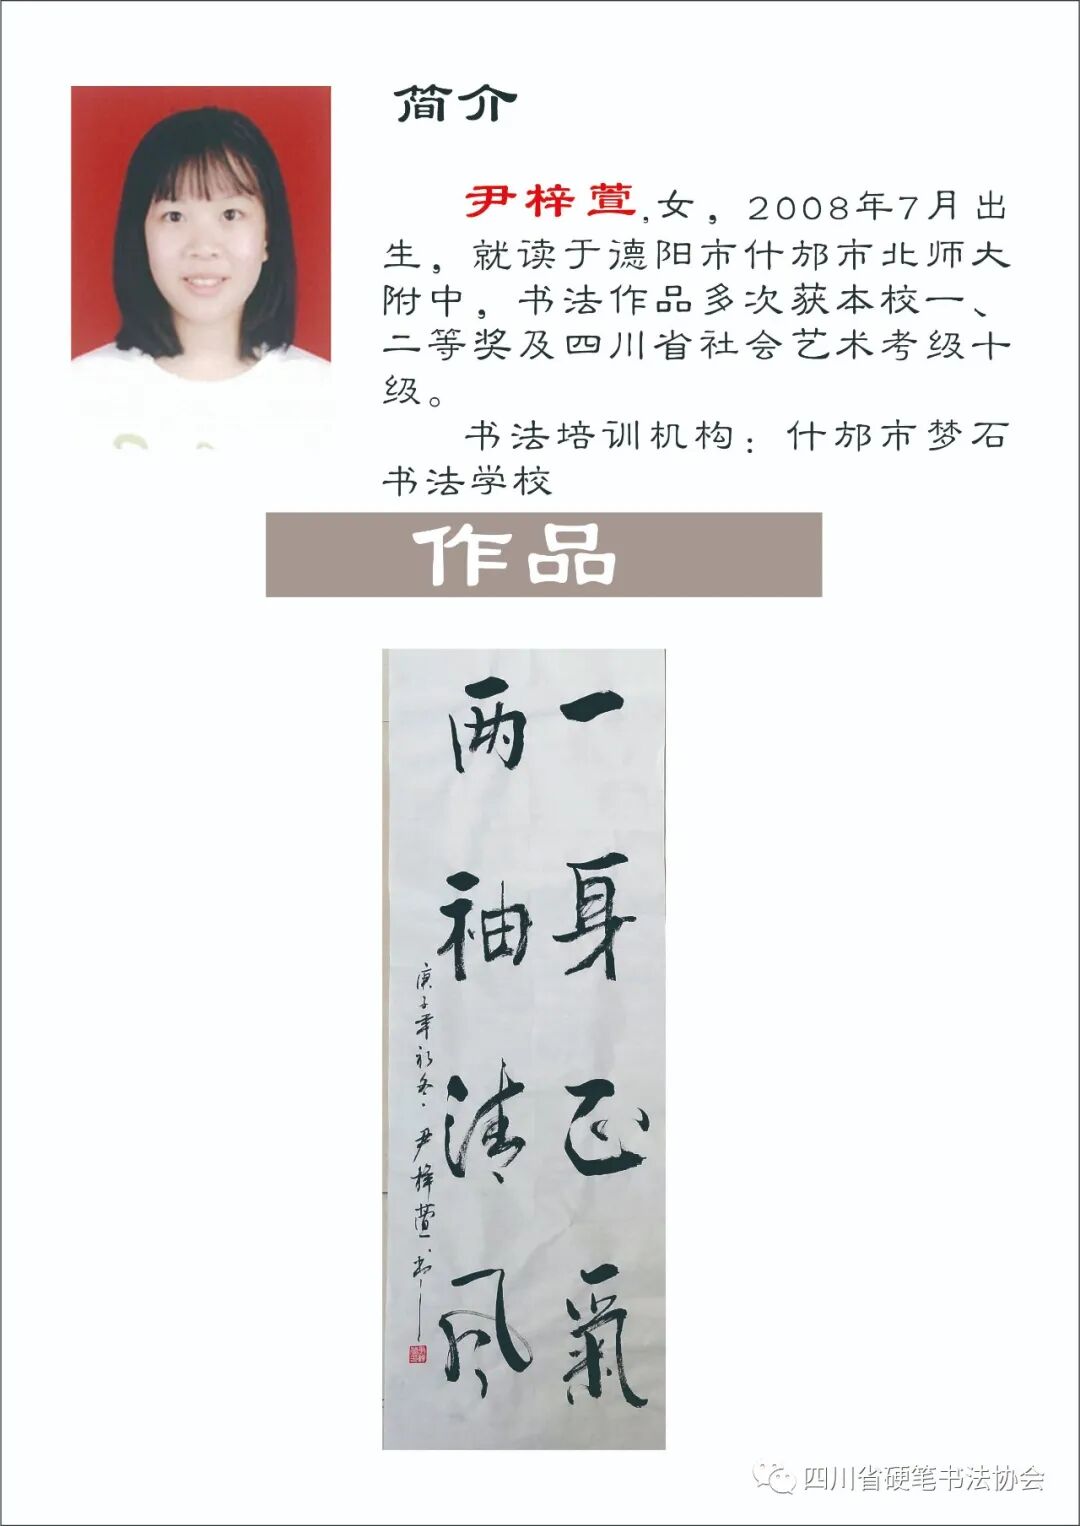 简介
尹梓萱,女，2008年7月出
生，就读于德阳市什邡市北师大
附中，书法作品多次获本校一、
二等奖及四川省社会艺术考级十
级。
书法培训机构：什邡市梦石
书法学校
作品
一身正氣
两袖清风
庚子年初冬·尹梓萱书
四川省硬笔书法协会